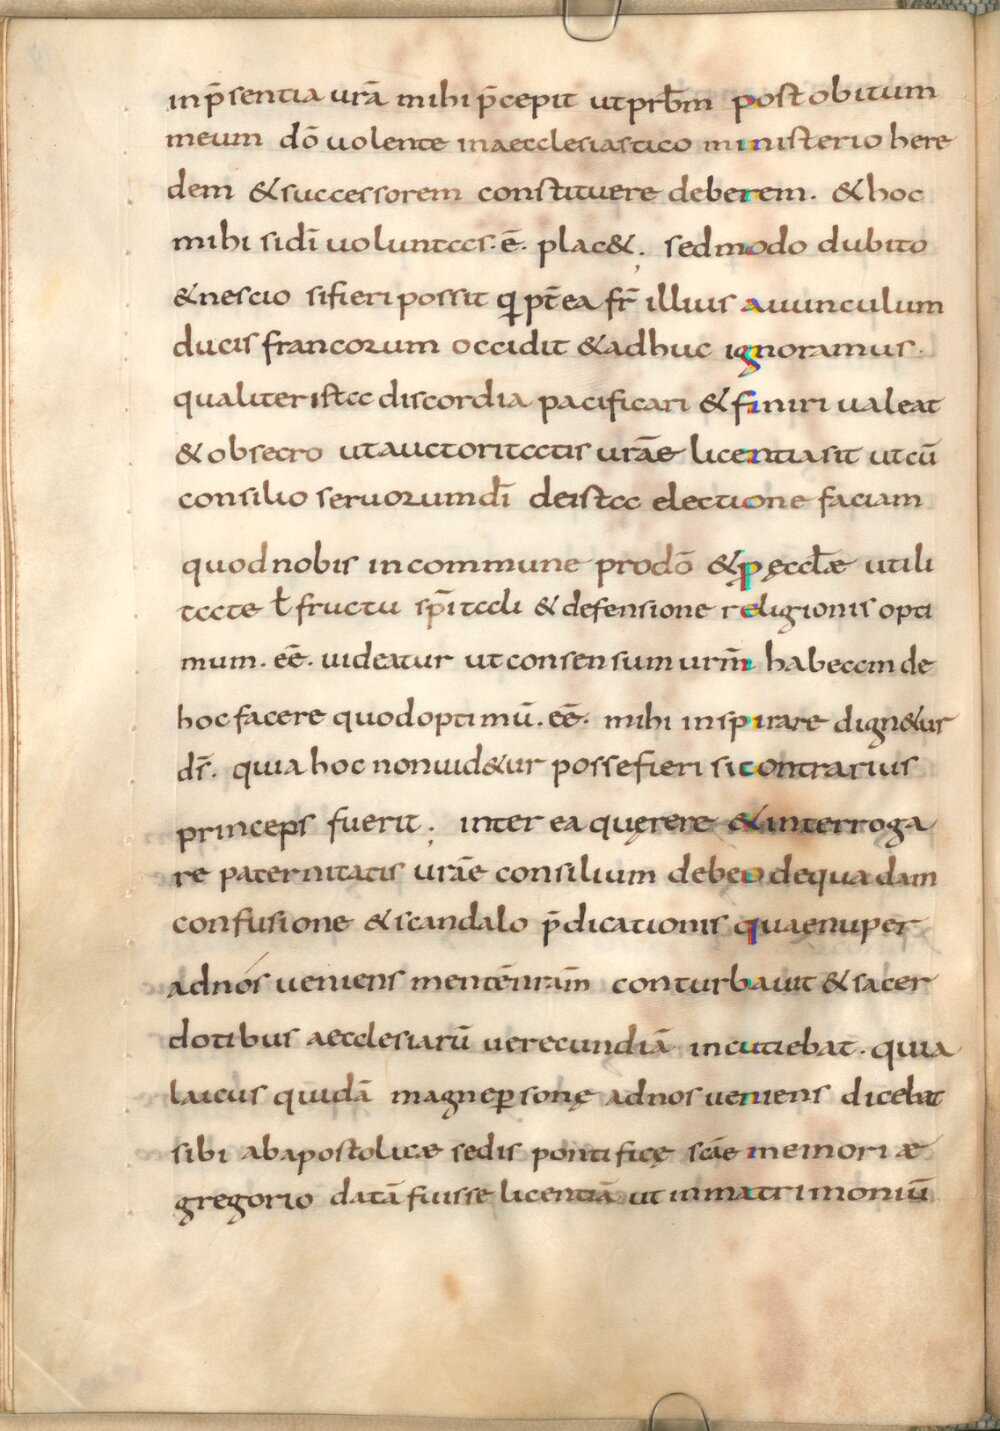 inp̄sentia urā mihi p̄cepit utprb̄m postobitum
meum dō uolente inaecclesiastico ministerio here
dem &successorem constituere deberem. & hoc
mihi sidī uoluntas.ē. plac&. sedmodo dubito
&nescio sifieri possit q̣ pt̄ea fr̄ illius auunculum
ducis francorum occidit &adhuc ignoramus.
qualiter ista discordia pacificari & finiri ualeat
& obsecro utauctoritatis urāe licentiasit utcū
consilio seruorumdī deista electione faciam
quodnobis incommune prodō &ꝓ ęccl̄æ utili
tate ł fructu sp̄itali & defensione religionis opti
mum. eē. uideatur utconsensum urm̄ habeam de
hocfacere quodoptimū. eē. mihi inspirare dign&ur
dī. quia hoc nonuid&ur possefieri sicontrarius
princeps fuerit. inter ea quęrere &interroga
re paternitatis urāe consilium debeo dequadam
confusione &scandalo p̄dicationis quaenuper
adnos ueniens mentēnrām conturbauit & sacer
dotibus aecclesiarū uerecundiā incutiebat. quia
laicus quidā magneꝑsonę adnosueniens dicebat
sibi abapostolicæ sedis pontificę scāe memoriæ
gregorio datāfuisse licentiā ut inmatrimoniū